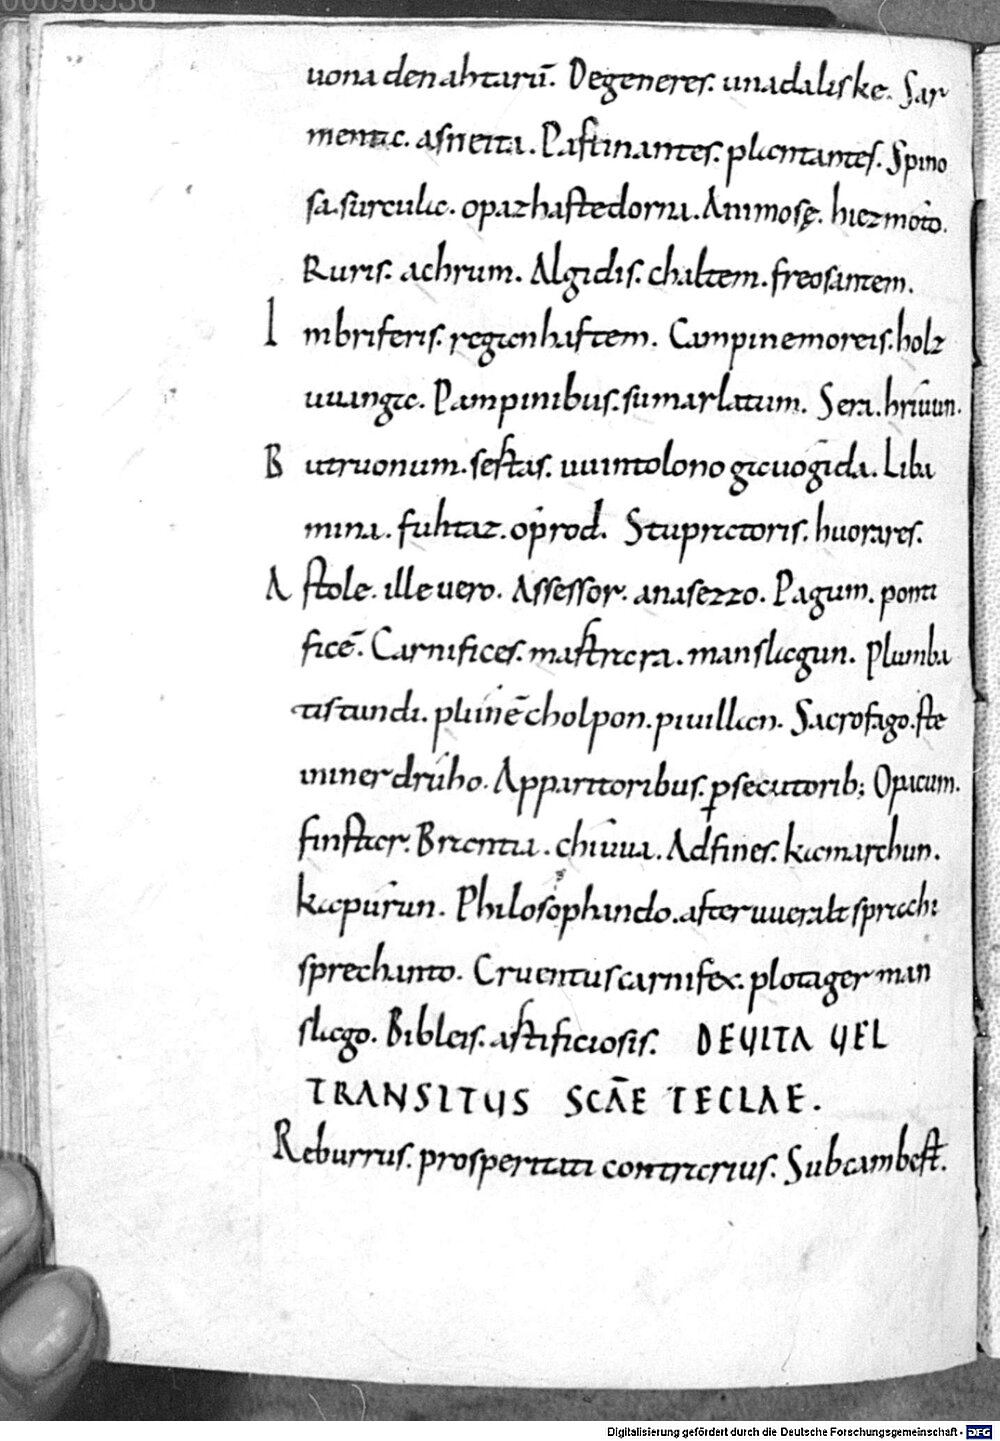 00096536
uona den ahtarū. Degeneres. unadaliske. Sar
mentac. asneita. Pastinantes. plantantes. Spino
sa. surculac. opazhaftedorni. Animosę. hiezmoto.
Ruris. achrum. Algidis. chaltem. freosantem.
Imbriferis. reganhaftem. Campinemoreis. holz
uuangac. Pampinibus. sumarlatum. Sera. hriuun.
Butruonum. seftas. uuintolono gauogida. Liba
mina. fuhtaz. oprod. Stupratoris. huorares.
Astole. ille uero. Assessor. anasezzo. Pagum. ponti
ficē. Carnifices. mastra ra. manslagun. Plumba
tistundi. pliinē cholpon. piuillan. Sacrofago. ste
ininer druho. Apparitoribus. psecutorib; Opacum.
finstar. Brantia. chiuua. Adfines. kamarchun.
kapurun. Philosophando. afteruueralt sprachi
sprechanto. Cruentus carnifex. plotager man
slago. Bibleis. astificiosis. DEUITA UEL
TRANSITUS SCĀE TECLAE.
Reburrus. prosperitati contrarius. Subcambest.
Digitalisierung gefördert durch die Deutsche Forschungsgemeinschaft - DFG